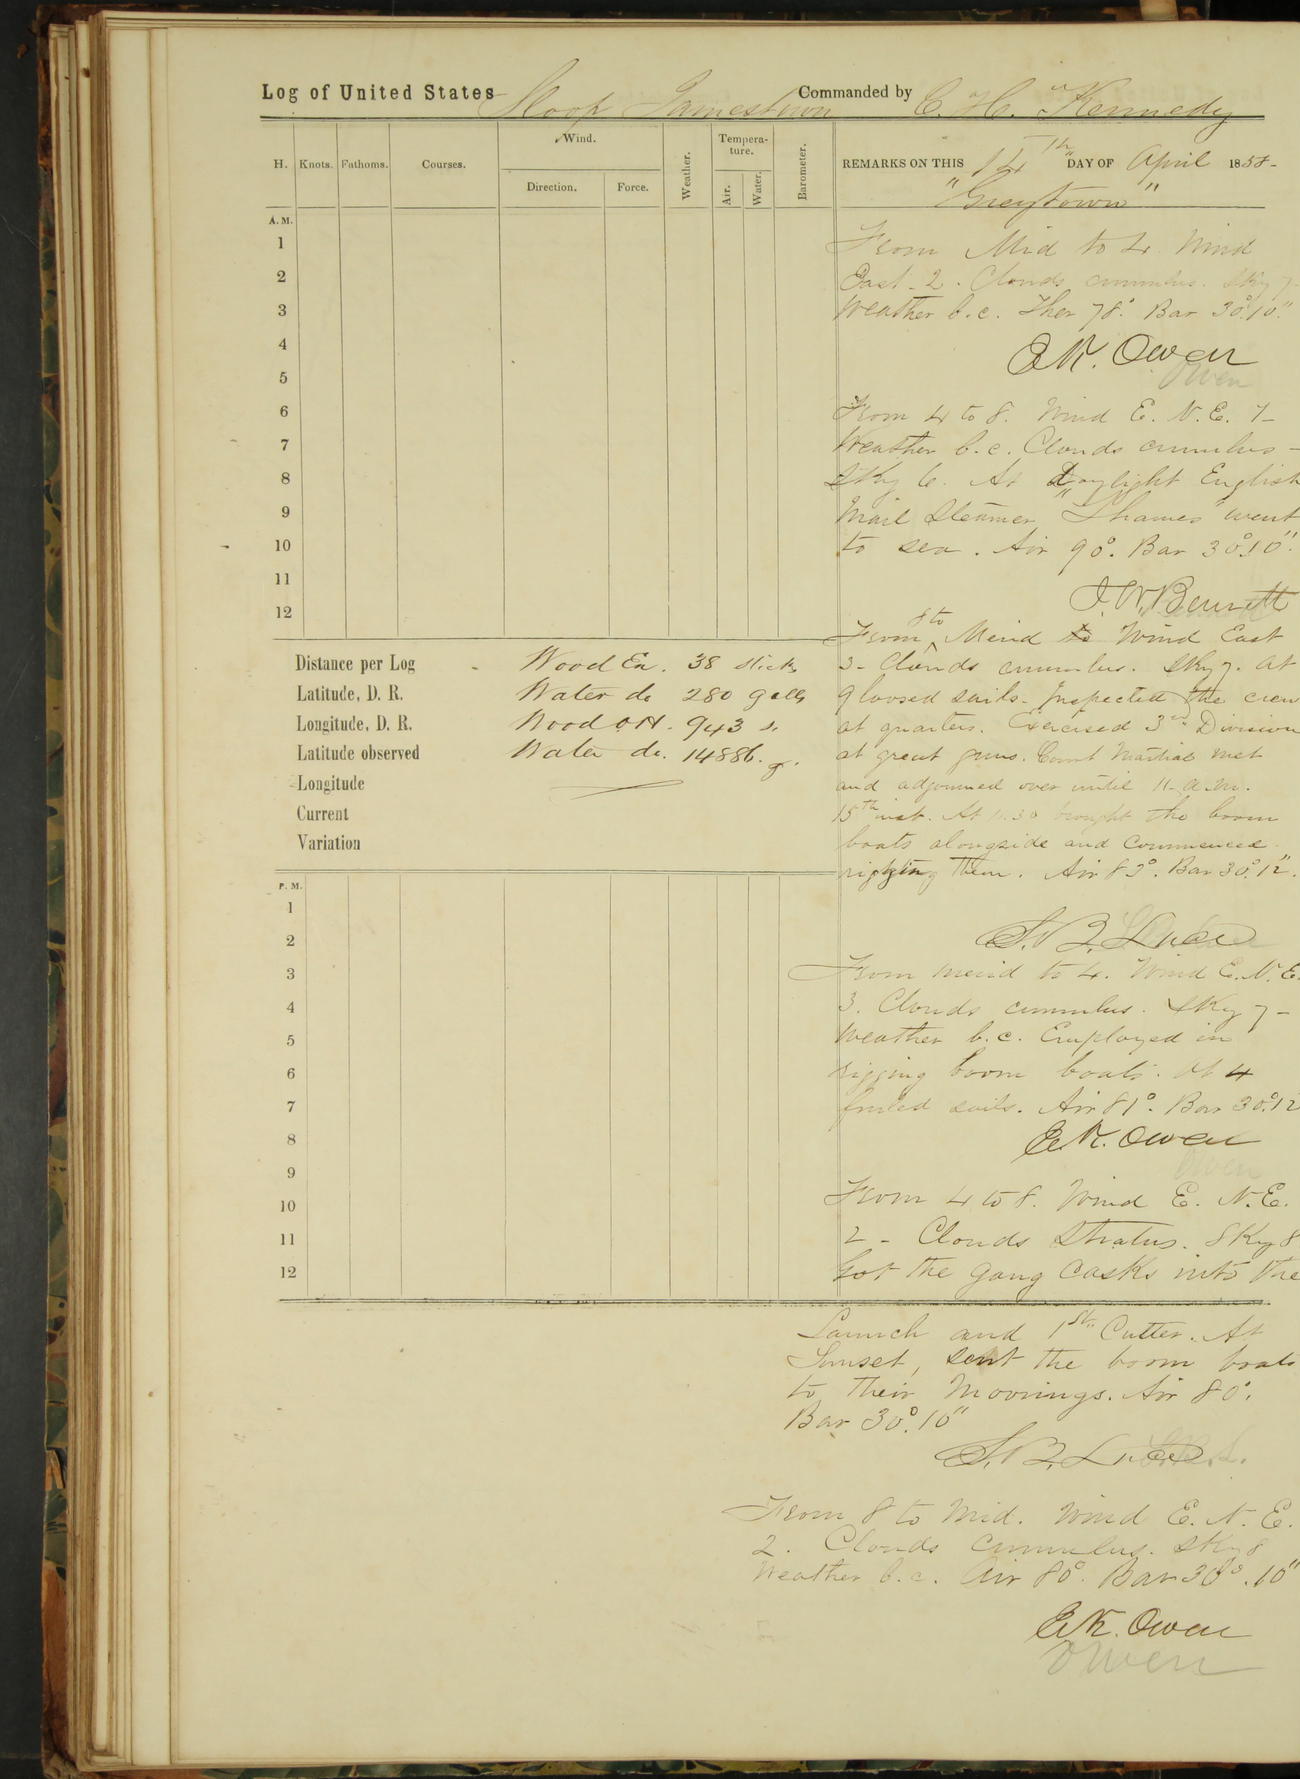 Log of United States Sloop Jamestown Commanded by C. H. Kennedy
H. Knots. Fathoms. Courses. Wind. Direction. Force. Weather. Tempera-ture. Air. Water. Barometer.
REMARKS ON THIS 14th DAY OF April 1858-
"Greytown"
A. M.
1
2
3
4
5
6
7
8
9
10
11
12
From Mid to 4. Wind
East 2. Clouds cumulus. Sky 7-
Weather b.c. Ther 78°. Bar 30°.10"
E.K. Owen
Owen
From 4 to 8. Wind E. N. E. 1-
Weather b.c. Clouds cumulus -
Sky 6. At Daylight English
Mail Steamer "Thames" went
to sea. Air 90°. Bar 30°.10".
J.W. Bennett
From 8 to Merid Wind East
3- Clouds cumulus. Sky 7. At
9 loosed sails. Inspected the crew
at quarters. Exercised 3rd Division
at great guns. Court Martial met
and adjourned over until 11. a.m.
15th inst. At 11.30 brought the boom
boats alongside and commenced
rigging them. Air 83°. Bar 30°.12".
S.B. Luce
Distance per Log
Latitude, D. R.
Longitude, D. R.
Latitude observed
Longitude
Current
Variation
Wood Ex. 38 sticks
Water do 280 galls
Wood O.H. 943 s.
Water do. 14886. g.
P. M.
1
2
3
4
5
6
7
8
9
10
11
12
From merid to 4. Wind E.N.E.
3. Clouds cumulus. Sky 7-
Weather b.c. Employed in
rigging boom boats. At 4
furled sails. Air 81°. Bar 30°.12
E.K. Owen
Owen
From 4 to 8. Wind E. N.E.
2 - Clouds Stratus. Sky 8
Got the gang casks into the
Launch and 1st Cutter. At
Sunset, sent the boom boats
to their Moorings. Air 80°.
Bar 30°.10"
S.B. Luce
From 8 to Mid. Wind E. N. E.
2. Clouds Cumulus. Sky 8
Weather b.c. Air 80°. Bar 30°.10"
E.K. Owen
Owen